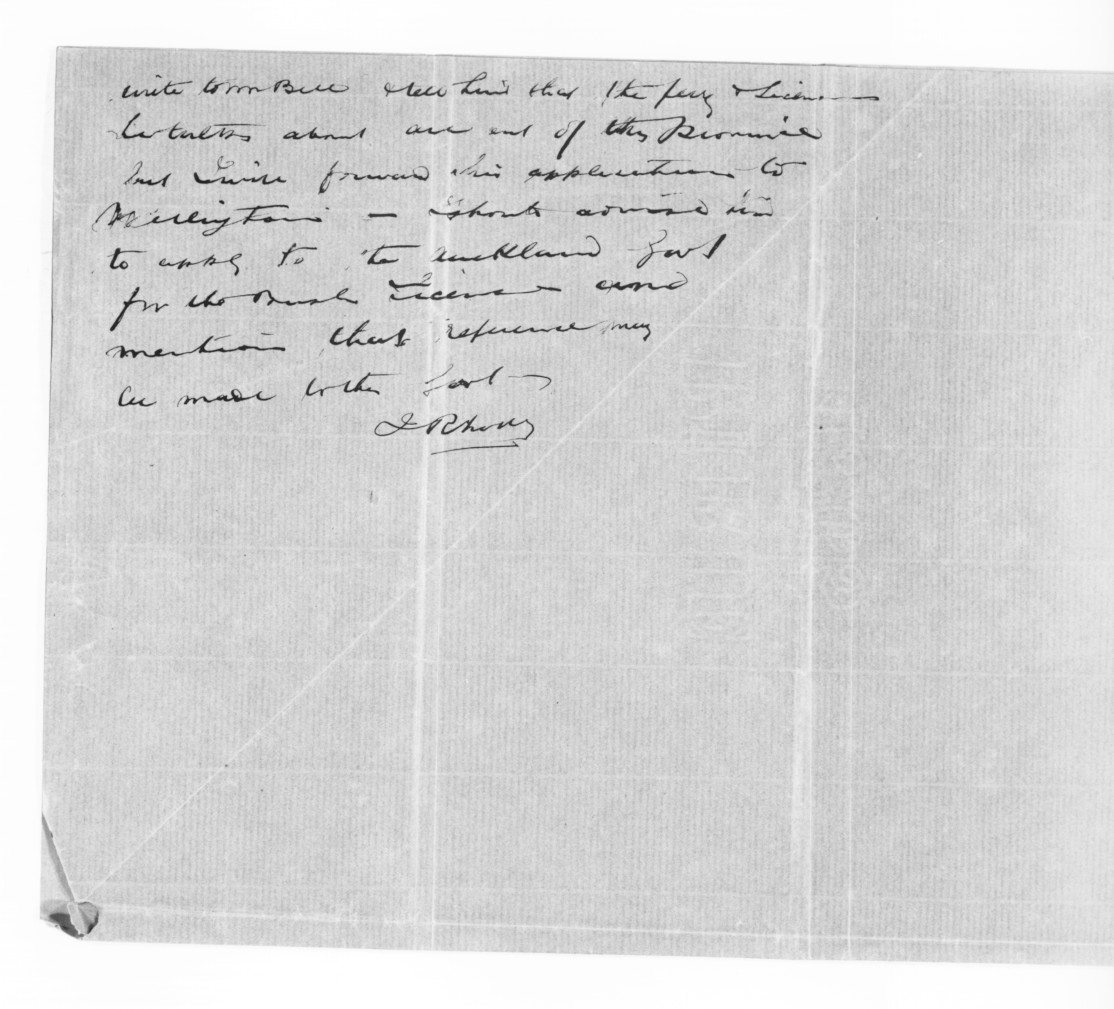 write to Mr Bell & tell him that the ferry & License
he talks about are out of this Province
but I will forward his application to
Wellington — I should advise him
to apply to the Auckland Govt
for the Bush License and
mention that reference may
be made to the Govt
J Rhodes